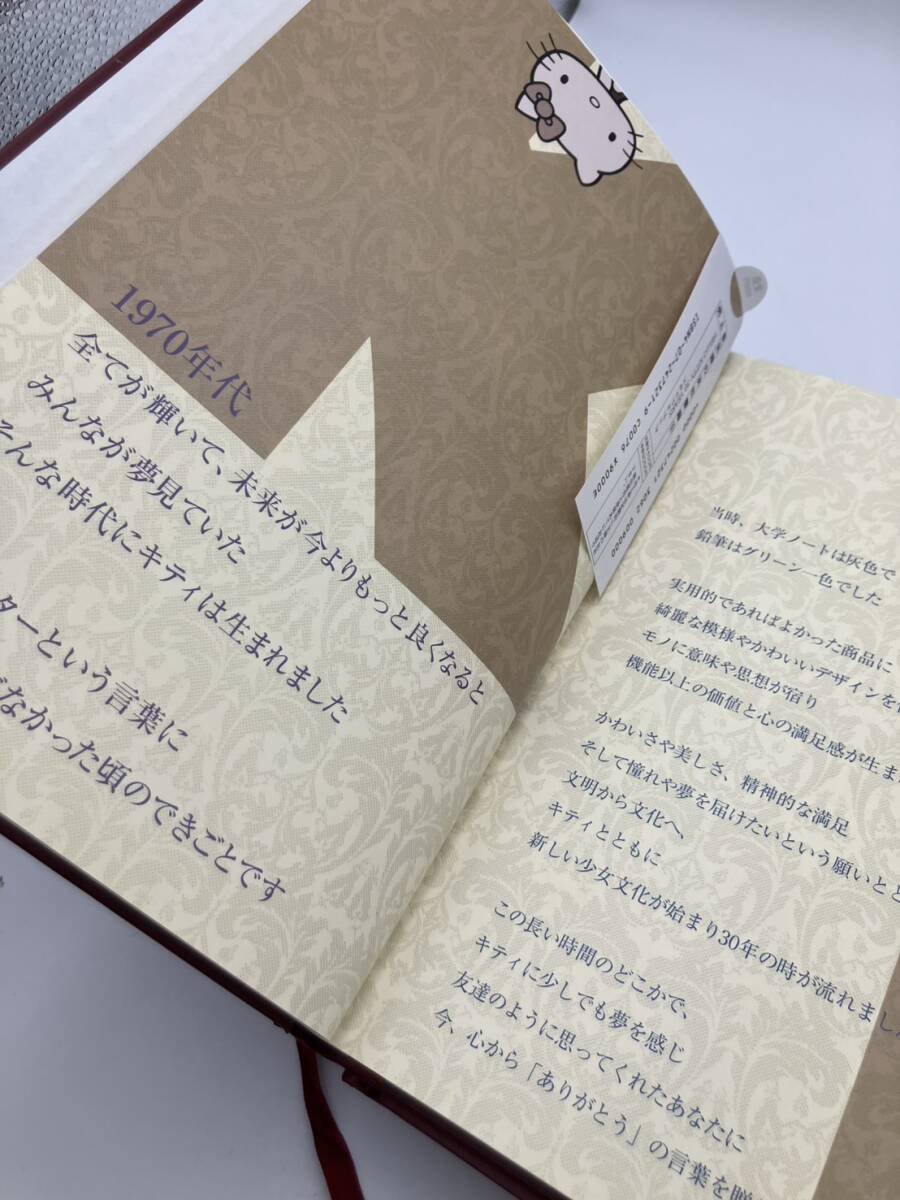 1970年代
全てが輝いて、未来が今よりもっと良くなると
みんなが夢見ていた
そんな時代にキティは生まれました
ターという言葉に
なかった頃のできごとです
C0076 ¥9000E
当時、大学ノートは灰色で
鉛筆はグリーン一色でした
実用的であればよかった商品に
綺麗な模様やかわいいデザインを
モノに意味や思想が宿り
機能以上の価値と心の満足感が生ま
かわいさや美しさ、精神的な満足
そして憧れや夢を届けたいという願いと
文明から文化へ、
キティとともに
新しい少女文化が始まり30年の時が流れまし
この長い時間のどこかで、
キティに少しでも夢を感じ
友達のように思ってくれたあなたに
今、心から「ありがとう」の言葉を贈